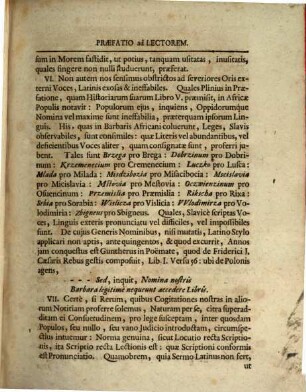 PRÆFATIO ad LECTOREM.
sum in Morem fastidit, ut potius, tanquam usitatas, inusitatis,
quales fingere non nulli studuerunt, præferat.
VI. Non autem nos sensimus obstrictos ad severiores Oris ex-
terni Voces, Latinis exosas & ineffabiles. Quales Plinius in Præ-
fatione, quam Historiarum suarum Libro V. præmisit, in Africæ
Populis notavit: Populorum ejus, inquiens, Oppidorumque
Nomina vel maxime sunt ineffabilia, præterquam ipsorum Lin-
guis. His, quas in Barbaris Africani coluerunt, Leges, Slavis
observabiles, sunt consimiles: quæ Literis vel abundantibus, vel
deficientibus Voces aliter, quam consignatæ sunt, proferri ju-
bent. Tales sunt Brzega pro Brega: Dobrzinum pro Dobri-
num: Krzemenecium pro Cremenecium: Luczko pro Lusia:
Mlada pro Milada: Msedzibozia pro Miscibocia: Mscislavia
pro Micislavia: Mstovia pro Mestovia: Oczwiencimum pro
Osuencimum: Przemislia pro Præmislia: Rzkecha pro Risa:
Srbia pro Sorabia: Wislicza pro Vislicia: VVlodimirza pro Vo-
lodimiria: Zbigneus pro Sbigneus. Quales, Slavicè scriptas Vo-
ces, Linguis exteris pronunciatu vel difficiles, vel impossibiles
sunt. De cujus Generis Nominibus, nisi mutatis, Latino Stylo
applicari non aptis, ante quingentos, & quod excurrit, Annos
jam conquestus est Guntherus in Poëmate, quod de Friderici I.
Cæsaris Rebus gestis composuit, Lib. I. Versu 56: ubi de Polonis
agens,
- - - - Sed, inquit, Nomina nostris
Barbara legitimè nequeunt accedere Libris.
VII. Certè, si Rerum, quibus Cogitationes nostras in alio-
rum Notitiam proferre solemus, Naturam persæ, citra superad-
ditam ei Consuetudinem, pro lege susceptam, inter quosdam
Populos, seu nullo, seu vano Judicio introductam, circumspe-
ctius intuemur: Norma genuina, sicut Locutio recta Scriptio-
nis, ita Scriptio recta Lectionis est: quæ Scriptioni conformis
est Pronunciatio. Quamobrem, quia Sermo Latinus non fert,
ut